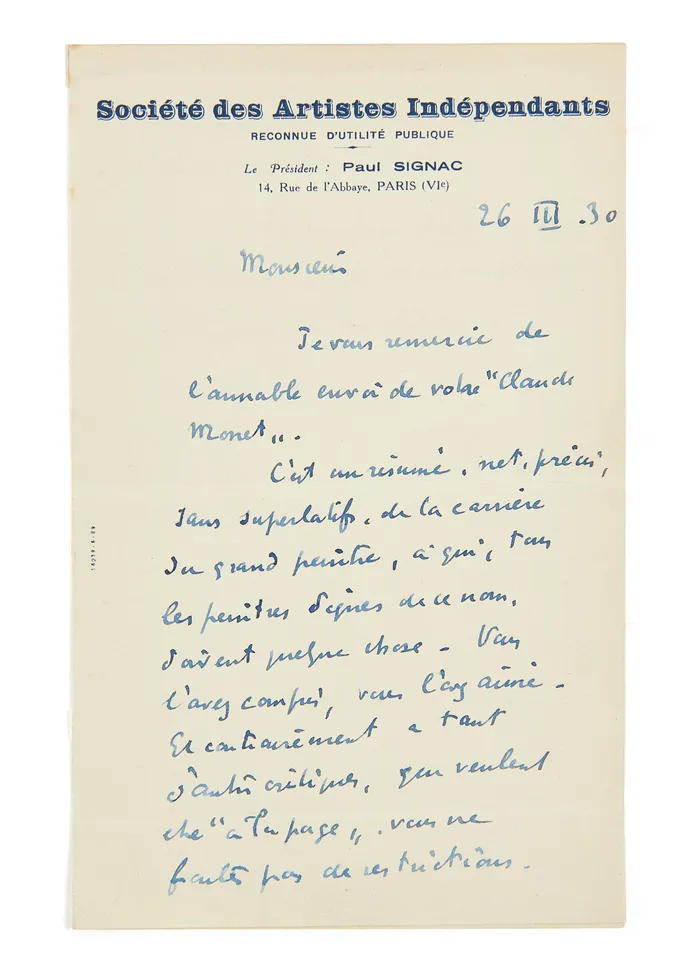 Société des Artistes Indépendants
RECONNUE D'UTILITÉ PUBLIQUE
Le Président : Paul SIGNAC
14, Rue de l'Abbaye, PARIS (VIe)
26 III .30
Monsieur
Je vous remercie de
l'aimable envoi de votre "Claude
Monet„.
C'est un résumé, net, précis,
sans superlatifs, de la carrière
du grand peintre, à qui, tous
les peintres dignes de ce nom,
doivent quelque chose - Vous
l'avez compris, vous l'avez aimé -
Et contrairement a tant
d'autres critiques, qui veulent
être "à la page„, vous ne
faites pas de restrictions.